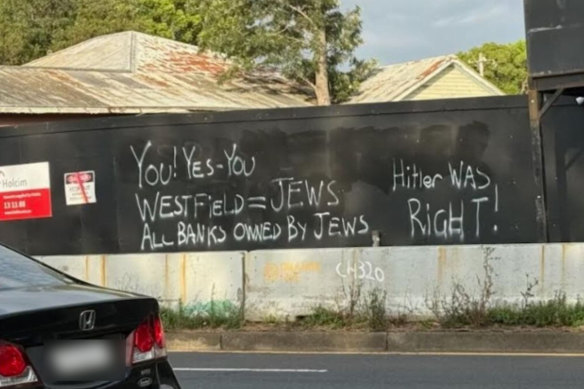 YOU! YES-YOU
WESTFIELD = JEWS
ALL BANKS OWNED BY JEWS
Hitler WAS
RIGHT!
Holcim
13 11 88
CH320